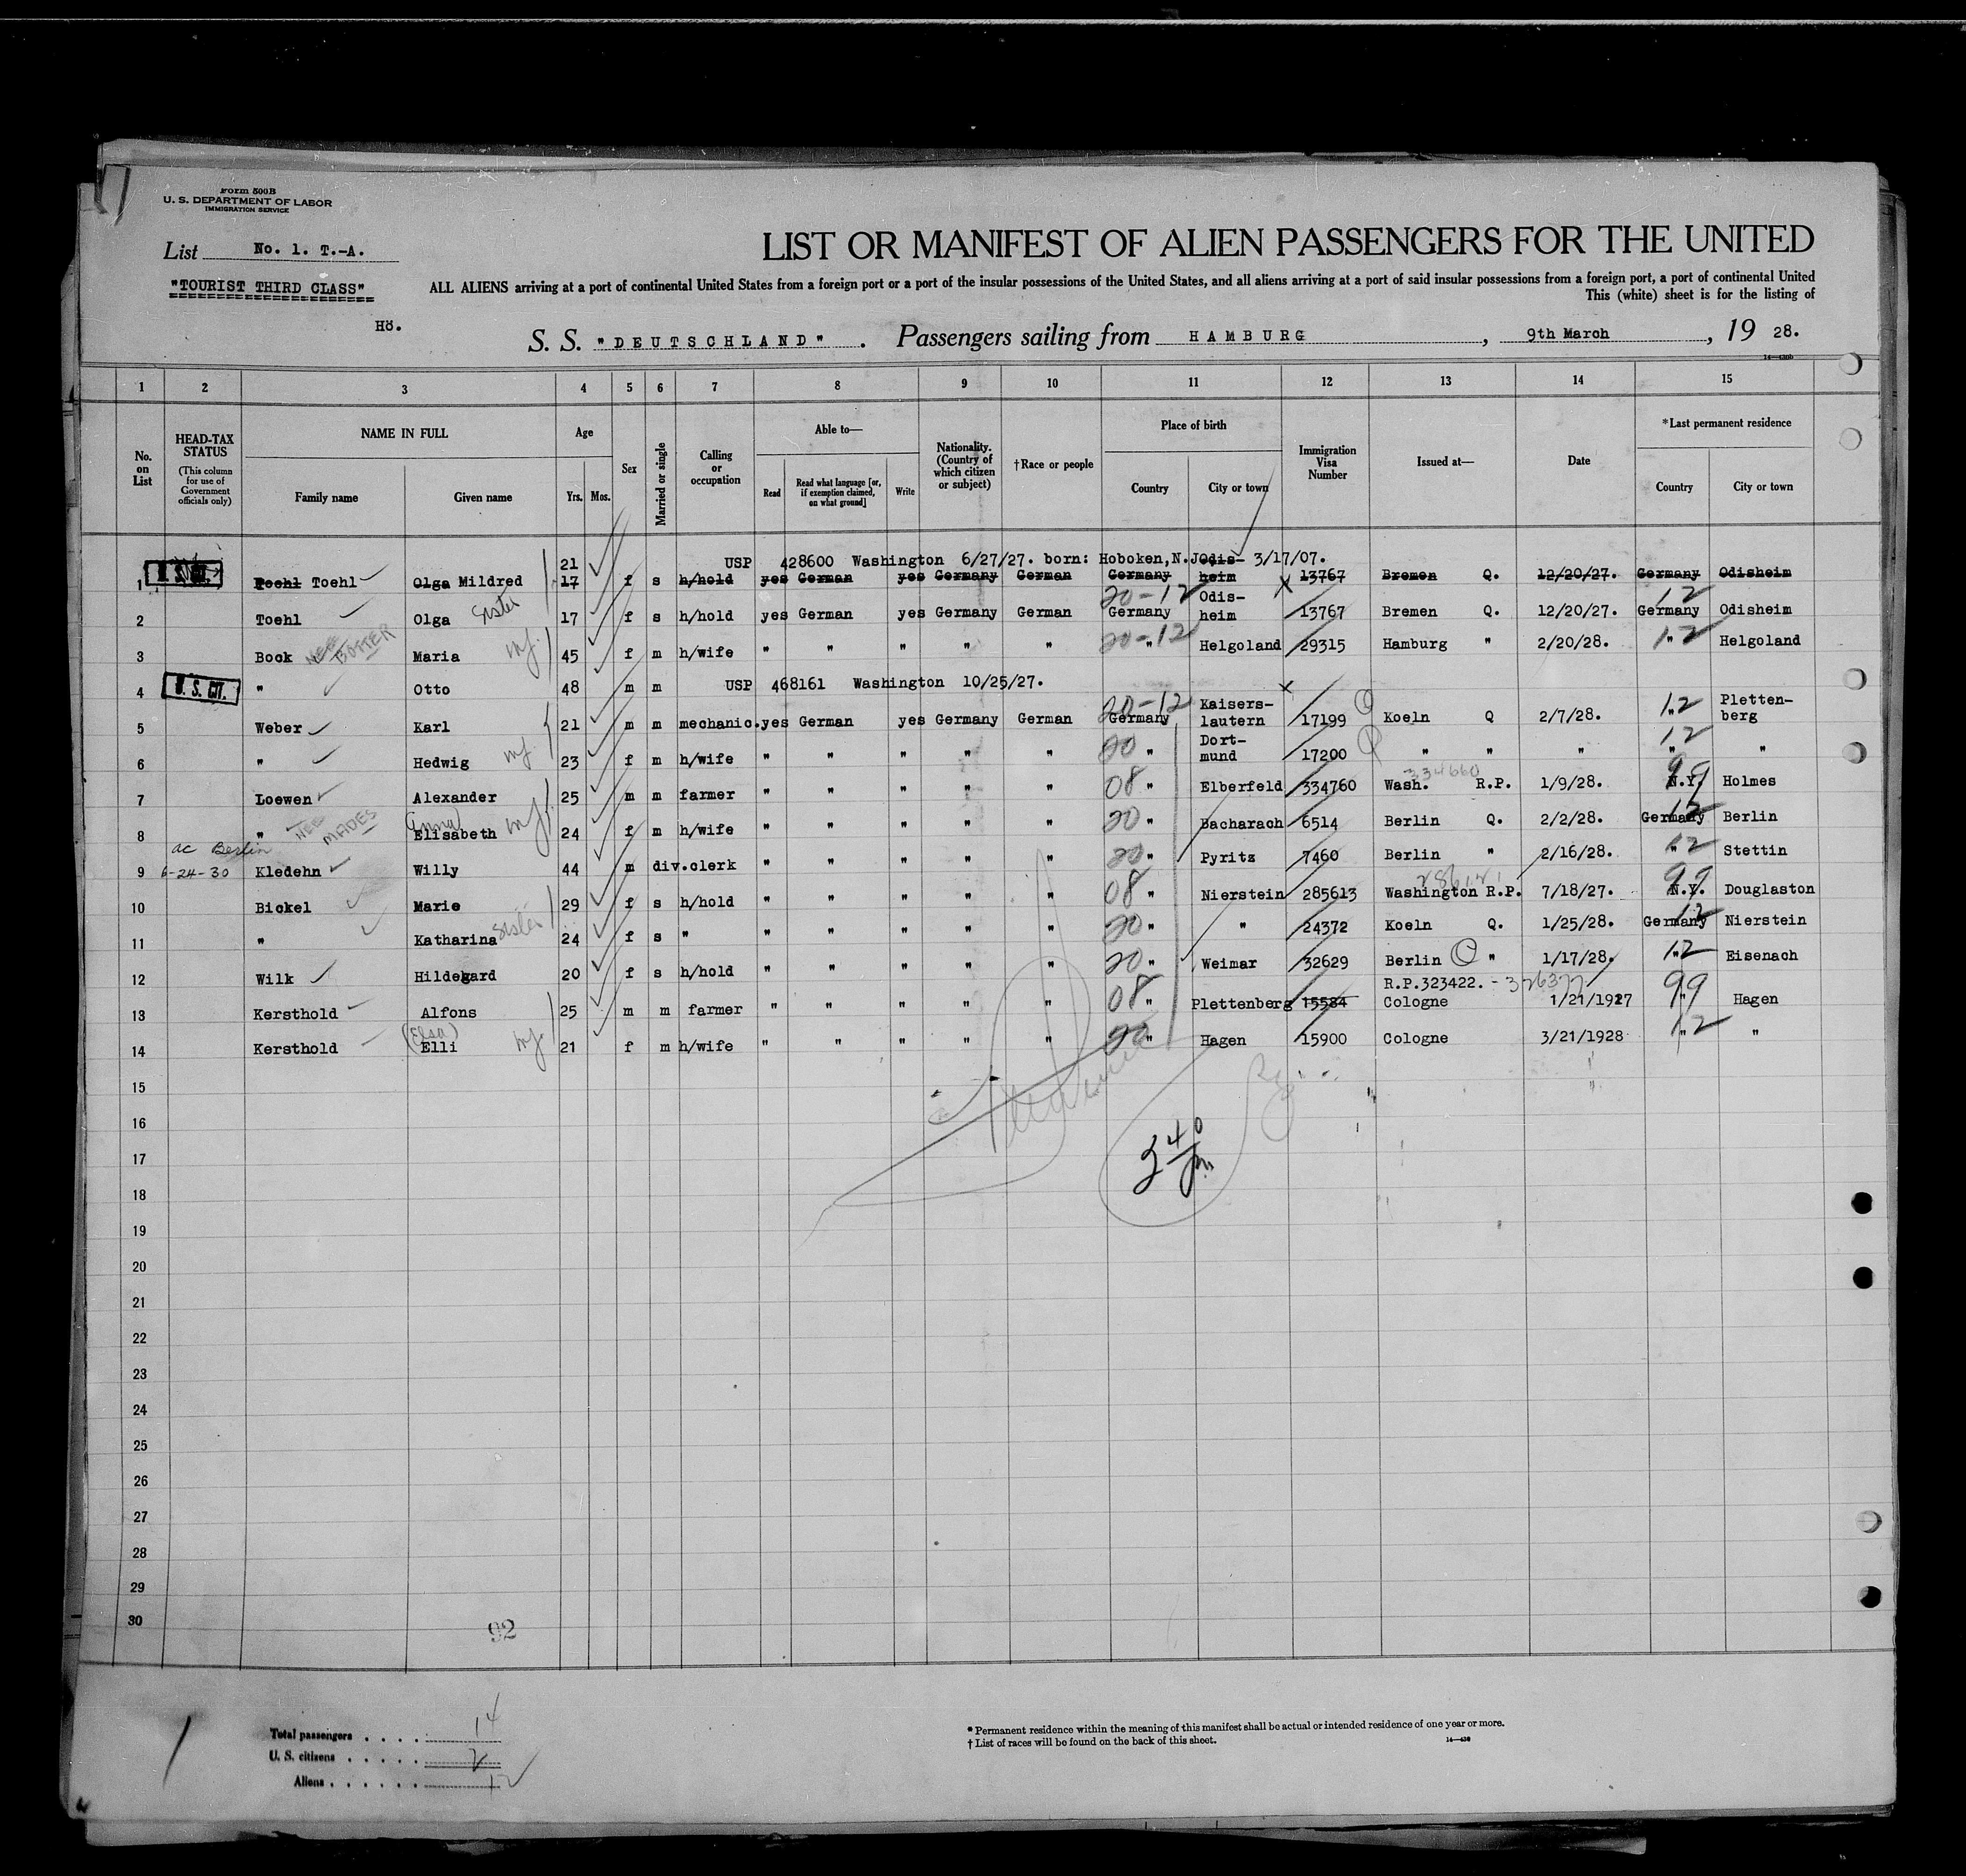 Form 500B
U. S. DEPARTMENT OF LABOR
IMMIGRATION SERVICE
List No. 1. T.-A.
LIST OR MANIFEST OF ALIEN PASSENGERS FOR THE UNITED
"TOURIST THIRD CLASS"
ALL ALIENS arriving at a port of continental United States from a foreign port or a port of the insular possessions of the United States, and all aliens arriving at a port of said insular possessions from a foreign port, a port of continental United
This (white) sheet is for the listing of
Hö.
S. S. "DEUTSCHLAND". Passengers sailing from HAMBURG, 9th March, 19 28.
1 2 3 4 5 6 7 8 9 10 11 12 13 14 15
No. on List
HEAD-TAX STATUS
(This column for use of Government officials only)
NAME IN FULL
Family name Given name
Age
Yrs. Mos.
Sex
Married or single
Calling or occupation
Able to—
Read Read what language [or, if exemption claimed, on what ground] Write
Nationality. (Country of which citizen or subject)
†Race or people
Place of birth
Country City or town
Immigration Visa Number
Issued at—
Date
*Last permanent residence
Country City or town
21 USP 428600 Washington 6/27/27. born: Hoboken,N.J. Odis- 3/17/07.
1 U. S. CIT. Toehl Toehl Olga Mildred 17 f s h/hold yes German yes Germany German Germany heim 13767 Bremen Q. 12/20/27. Germany Odisheim
Sister 20-12 Odis- 12
2 Toehl Olga 17 f s h/hold yes German yes Germany German Germany heim 13767 Bremen Q. 12/20/27. Germany Odisheim
3 Bock NEE Maria 45 f m h/wife " " " " " 20-12 " Helgoland 29315 Hamburg " 2/20/28. " 12 Helgoland
4 U. S. CIT. " Otto 48 m m USP 468161 Washington 10/25/27.
20-12 Kaisers- Pletten-
5 Weber Karl 21 m m mechanic. yes German yes Germany German Germany lautern 17199 Koeln Q 2/7/28. " 12 berg
Dort- 12
6 " Hedwig 23 f m h/wife " " " " " 20 " mund 17200 " " " " "
334660
7 Loewen Alexander 25 m m farmer " " " " " 08 " Elberfeld 334760 Wash. R.P. 1/9/28. N.Y. 99 Holmes
NEE MADES (Anna)
8 " Elisabeth 24 f m h/wife " " " " " 20 " Bacharach 6514 Berlin Q. 2/2/28. Germany 12 Berlin
ac Berlin
9 6-24-30 Kledehn Willy 44 m div. clerk " " " " " 20 " Pyritz 7460 Berlin " 2/16/28. " 12 Stettin
10 Bickel Marie 29 f s h/hold " " " " " 08 " Nierstein 285613 Washington R.P. 7/18/27. N.Y. 99 Douglaston
11 " Katharina Sister 24 f s " " " " " " 20 " " 24372 Koeln Q. 1/25/28. Germany 12 Nierstein
12 Wilk Hildegard 20 f s h/hold " " " " " 20 " Weimar 32629 Berlin " 1/17/28. " 12 Eisenach
R.P.323422. - 326377
13 Kersthold Alfons 25 m m farmer " " " " " 08 " Plettenberg 15584 Cologne 1/21/1927 99 " Hagen
(Elsa)
14 Kersthold Elli 21 f m h/wife " " " " " 20 " Hagen 15900 Cologne 3/21/1928 12 " "
15
16
17
18
19
20
21
22
23
24
25
26
27
28
29
30
92
Total passengers . . . . 14
U. S. citizens . . . . . 2
Aliens . . . . . . 12
* Permanent residence within the meaning of this manifest shall be actual or intended residence of one year or more.
† List of races will be found on the back of this sheet.
14—430